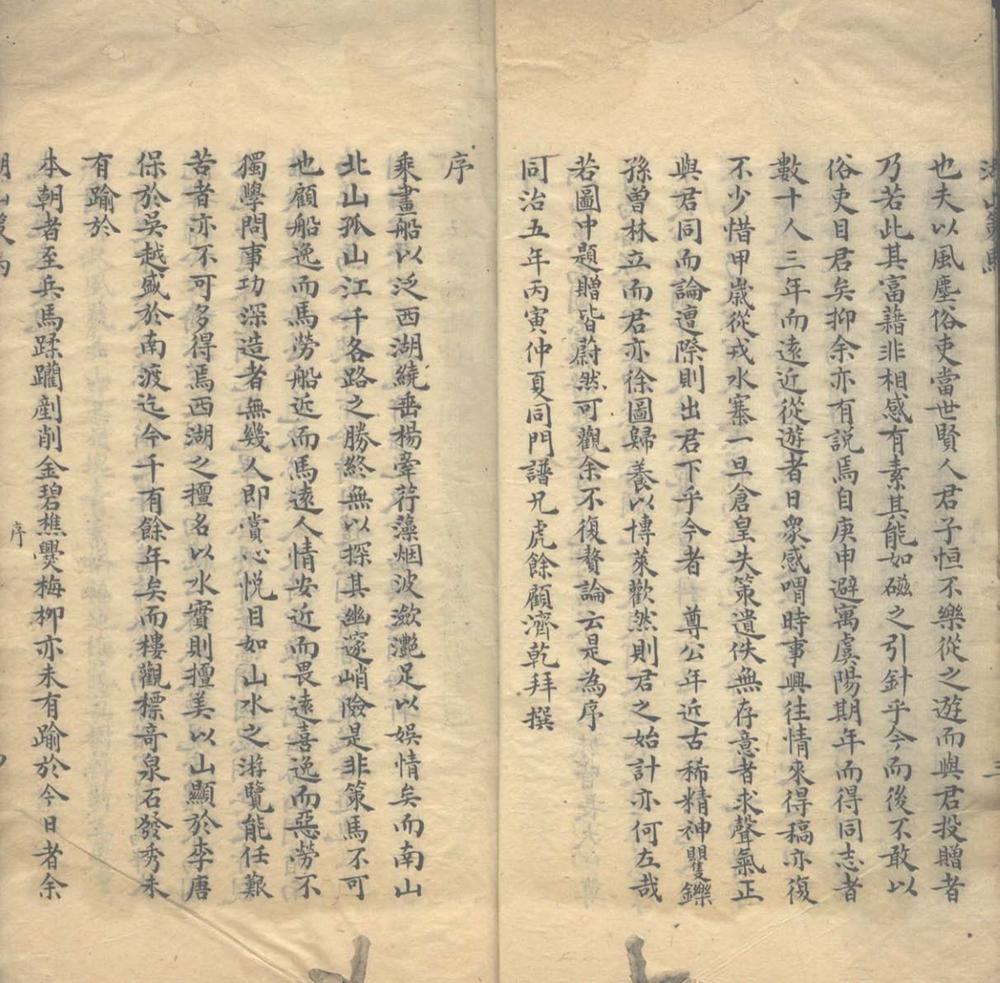 也夫以風塵俗吏當世賢人君子恒不樂從之遊而與君投贈者
乃若此其富藉非相感有素其能如磁之引針乎今而後不敢以
俗吏目君矣抑余亦有説焉自庚申避寓虞陽期年而得同志者
數十人三年而遠近從遊者日衆感喟時事興往情來得稿亦復
不少惜甲歲從戎水寨一旦倉皇失策遺佚無存意者求聲氣正
與君同而論遭際則出君下乎今者 尊公年近古稀精神矍鑠
孫曽林立而君亦徐圖歸養以博萊歡然則君之始計亦何左哉
若圖中題贈皆蔚然可觀余不復贅論云是為序
同治五年丙寅仲夏同門譜兄虎餘顧濟乾拜撰
序
乘畫船以泛西湖繞垂楊牽荇藻烟波瀲灩足以娯情矣而南山
北山孤山江干各路之勝終無以探其幽邃峭險是非策馬不可
也顧船逸而馬勞船近而馬遠人情安近而畏遠喜逸而惡勞不
獨學問事功深造者無幾人即賞心悦目如山水之游覽能任艱
苦者亦不可多得焉西湖之擅名以水實則擅美以山顯於李唐
保於吳越盛於南渡迄今千有餘年矣而樓觀標竒泉石發秀未
有踰於
本朝者至兵馬蹂躪剷削金碧樵爨梅柳亦未有踰於今日者余
序